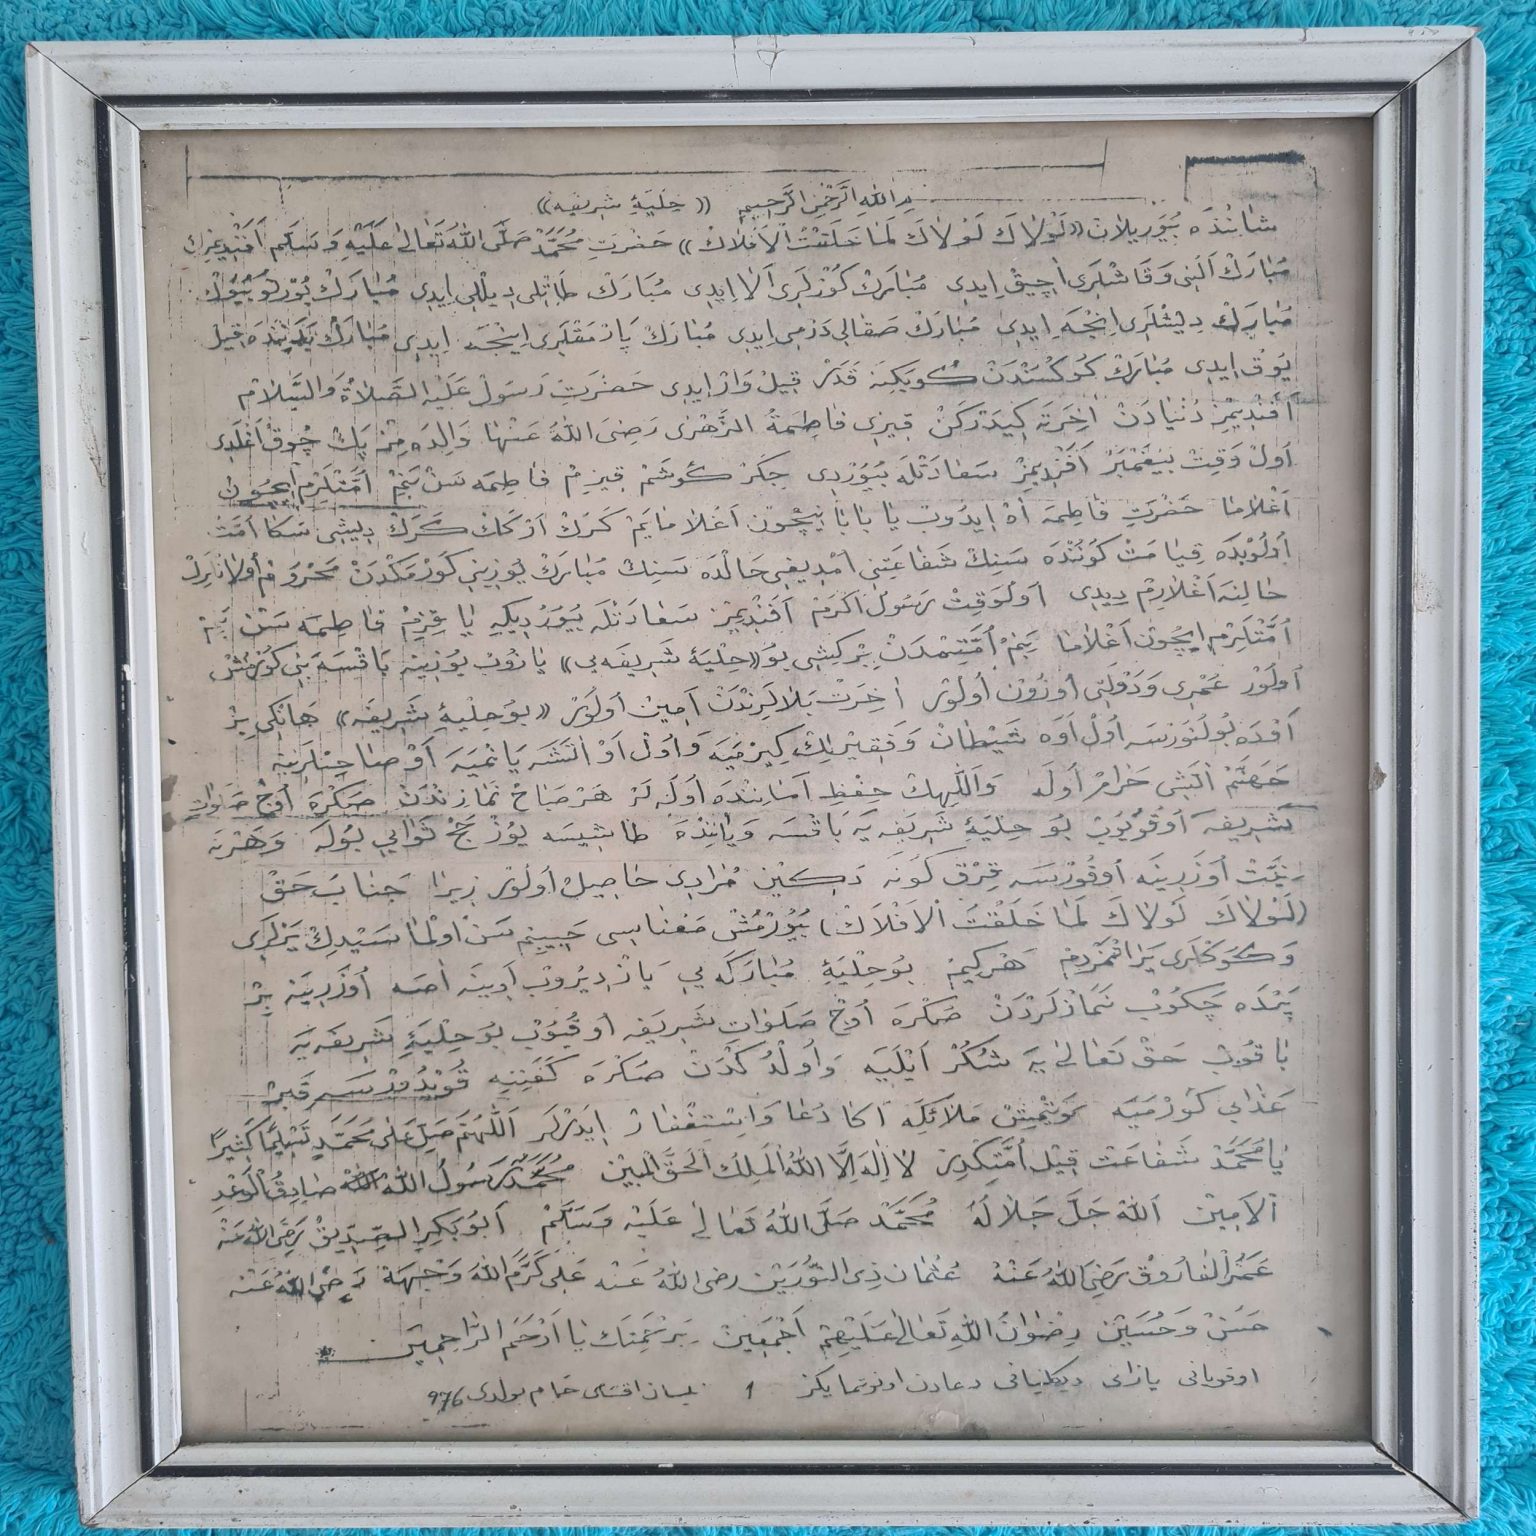 بِسْمِ اللهِ الرَّحْمٰنِ الرَّحِيمِ ((حِلْيَةِ شَرِيفَه))
شَانِنْدَه بُيُورِيلَانْ ((لَوْلَاكَ لَوْلَاكَ لَمَا خَلَقْتُ الْاَفْلَاكَ)) حَضْرَتِ مُحَمَّدْ صَلَّى اللهُ تَعَالٰى عَلَيْهِ وَسَلَّمْ اَفَنْدِيمِزِكْ
مُبَارَكْ اَلَنِى وَقَاشْلَرِى اَچِيقْ اِيدِى مُبَارَكْ كُوزْلَرِى اَلَا اِيدِى مُبَارَكْ طَاتْلِى دِيلْلِى اِيدِى مُبَارَكْ بُورْنُو بُيُوكْ
مُبَارَكْ دِيشْلَرِى اِنْجَه اِيدِى مُبَارَكْ صَقَالِى دَرْمِى اِيدِى مُبَارَكْ پَارْمَقْلَرِى اِينْجَه اِيدِى مُبَارَكْ بَدَنِنْدَه قِيلْ
يُوقْ اِيدِى مُبَارَكْ كُوكْسُنْدَنْ كُوبَكِينَه قَدَرْ قِيلْ وَارْ اِيدِى حَضْرَتِ رَسُولْ عَلَيْهِ الصَّلَاةُ وَالسَّلَامْ
اَفَنْدِيمِزْ دُنْيَادَنْ اٰخِرَتَه كِيدَرْكَنْ قِيزِى فَاطِمَةُ الزَّهْرَى رَضِىَ اللهُ عَنْهَا وَالِدَه مِزْ پَكْ چُوقْ اَغْلَدِى
اَولْ وَقِتْ پَيْغَمْبَرْ اَفَنْدِيمِزْ سَعَادَتْلَه بُيُورْدِى جِكَرْ كُوشَمْ قِيزِمْ فَاطِمَه سَنْ بَنِمْ اُمَّتْلَرِمْ اِيچُونْ
اَغْلَامَا حَضْرَتِ فَاطِمَه اٰهْ اِيدُوبْ يَا بَابَا نِيچُونْ اَغْلَامَايَمْ كَرَكْ اَرْكَكْ كَرَكْ دِيشِى سَكَا اُمَّتْ
اُولُوبْدَه قِيَامَتْ كُونُنْدَه سَنِكْ شَفَاعَتِنِى اُمْدِيغِى حَالْدَه سَنِكْ مُبَارَكْ يُوزِينِى كُورْمَكْدَنْ مَحْرُومْ اُولَانْلَرِكْ
حَالِنَه اَغْلَارِمْ دِيدِى اُولْوَقِتْ رَسُولِ اَكْرَمْ اَفَنْدِيمِزْ سَعَادَتْلَه بُيُورْدِيكِه يَا قِزِمْ فَاطِمَه سَنْ بَنِمْ
اُمَّتْلَرِمْ اِيچُونْ اَغْلَامَا بَنِمْ اُمَّتِمْدَنْ بِرْ كِشِى بُو((حِلْيَةِ شَرِيفَه يِى)) يَازُوبْ يُوزِينَه بَاقْسَه بَنِى كُورْمُشْ
اُولُورْ عُمْرِى وَدَوْلَتِى اُوزُونْ اُولُورْ اٰخِرَتْ بَلَالَرِنْدَنْ اَمِينْ اُولُورْ ((بُو حِلْيَةِ شَرِيفَه)) هَانْكِى بِرْ
اَوْدَه بُولُنُورْسَه اُولْ اَوَه شَيْطَانْ وَفَقِيرْلِكْ كِيرْمَيَه وَاُولْ اَوْ اٰتَشَه يَانْمَيَه اَوْ صَاحِبْلَرِينَه
جَهَنَّمْ اٰتَشِى حَرَامْ اُولَه وَاللّٰهِكْ حِفْظِ اَمَانِنْدَه اُولَه لَرْ هَرْ صَبَاحْ نَمَازِنْدَنْ صَكْرَه اُوچْ صَلَوَاتِ
شَرِيفَه اُوقُويُوبْ بُو حِلْيَةِ شَرِيفَه يَه بَاقْسَه وَيَانِنْدَه طَاشِيسَه يُوزْ حَجْ ثَوَابِى بُولَه وَهَرْنَه
نِيَّتْ اُوزَرِينَه اُوقُورْسَه قِرْقْ كُونَه دَكِينْ مُرَادِى حَاصِيلْ اُولُورْ زِيرَا جَنَابِ حَقْ
(لَوْلَاكَ لَوْلَاكَ لَمَا خَلَقْتَ الْاَفْلَاكْ) بُيُورْمُشْ مَعْنَاسِى حَبِيبِمْ سَنْ اُولْمَاسَيْدِكْ يَرْلَرِى
وَكُوكْلَرِى يَرَاتْمَزْدِمْ هَرْكِيمْ بُو حِلْيَةِ مُبَارَكَه يِى يَازْدِيرُوبْ اَوِينَه اَصَه اُوزَرِينَه بِرْ
پَرْدَه چَكُوبْ نَمَازْلَرْدَنْ صَكْرَه اُوچْ صَلَوَاتِ شَرِيفَه اُوقُيُوبْ بُو حِلْيَةِ شَرِيفَه يَه
بَاقُوبْ حَقْ تَعَالٰى يَه شُكُرْ اَيْلَيَه وَاُولْدُكْدَنْ صَكْرَه كَفَنِينِه قُويْدُورْسَه قَبِرْ
عَذَابِى كُورْمَيَه يَتْمِشْ مَلَائِكَه اَكَا دُعَا وَاسْتِغْفَارْ اِيدَرْلَرْ اَللّٰهُمَّ صَلِّ عَلٰى مُحَمَّدٍ تَسْلِيمًا كَثِيرًا
يَا مُحَمَّدْ شَفَاعَتْ قِيلْ اُمَّتِكْدِرْ لَا اِلٰهَ اِلَّا اللهُ الْمَلِكُ الْحَقُّ الْمُبِينْ مُحَمَّدٌ رَسُولُ اللهْ صَادِقُ الْوَعْدِ
الْاَمِينْ اَللهْ جَلَّ جَلَالُهُ مُحَمَّدْ صَلَّى اللهُ تَعَالٰى عَلَيْهِ وَسَلَّمْ اَبُو بَكِرِ الصِّدِّيقْ رَضِىَ اللهُ عَنْهْ
عُمَرُ الْفَارُوقْ رَضِىَ اللهُ عَنْهْ عُثْمَان ذِى النُّورَيْن رَضِىَ اللهُ عَنْه عَلِى كَرَّمَ اللهُ وَجْهَهْ رَضِىَ اللهُ عَنْه
حَسَنْ وَحُسَيْن رِضْوَانُ اللهِ تَعَالٰى عَلَيْهِمْ اَجْمَعِينْ بِرَحْمَتِكَ يَا اَرْحَمَ الرَّاحِمِينَ
اوقويانى يازانى ديكليانى دعادن اونوتمايكز ١ نيسان 976